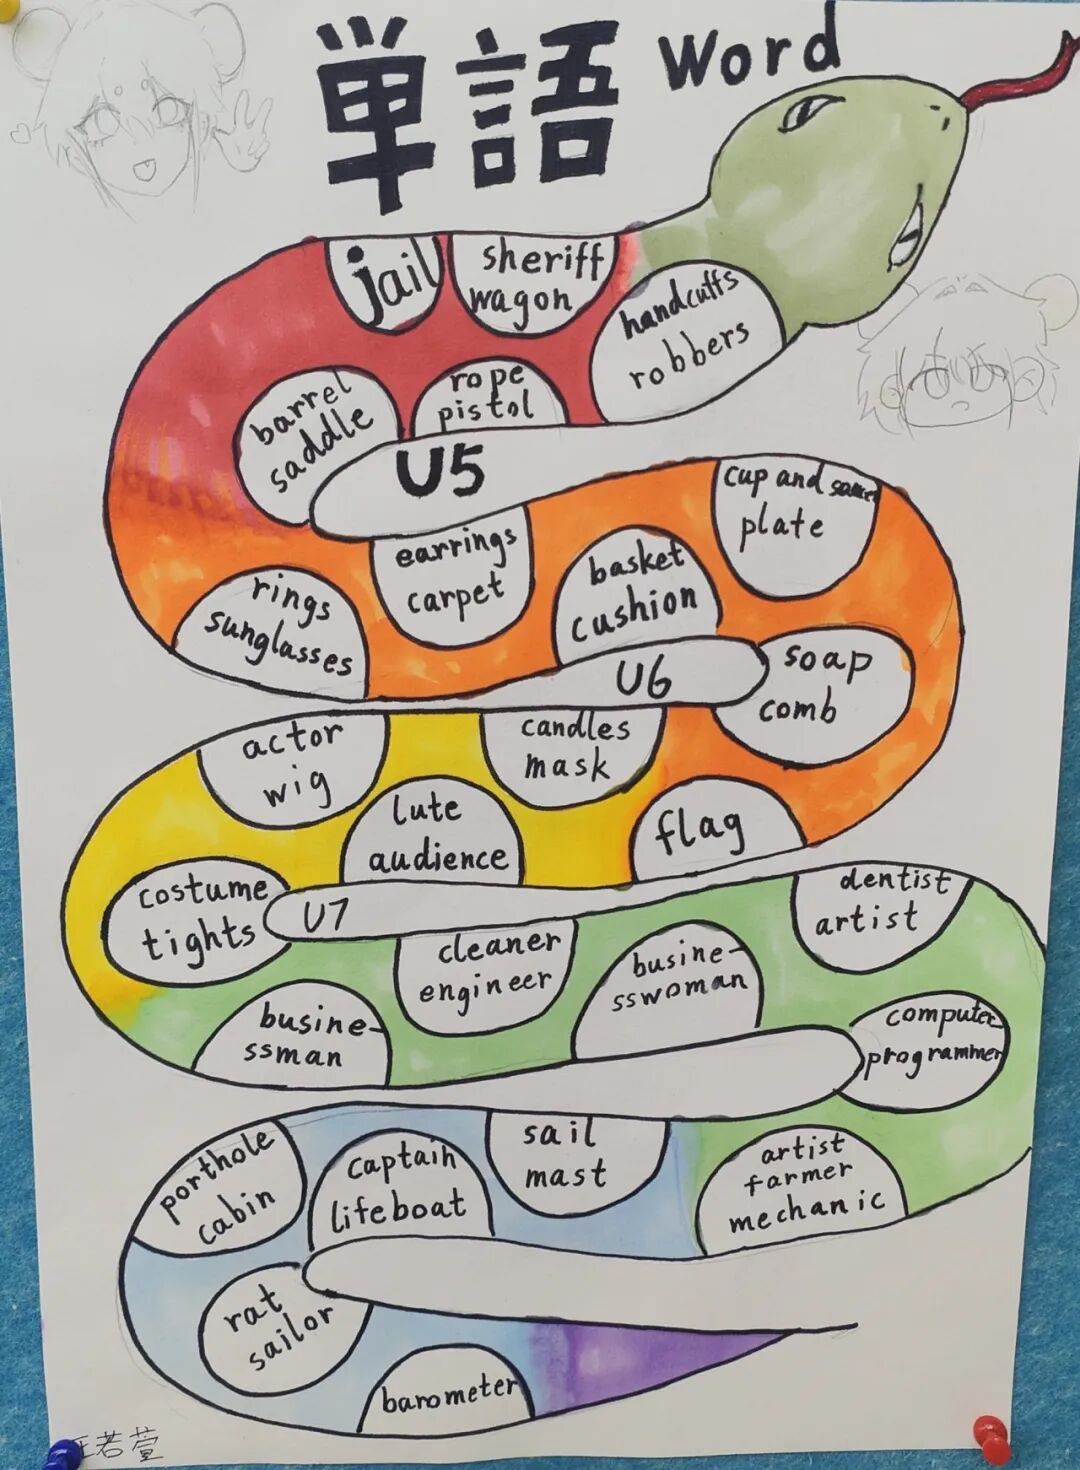 単語 Word
jail
sheriff
wagon
handcuffs
robbers
rope
pistol
barrel
saddle
U5
rings
sunglasses
earrings
carpet
basket
cushion
cup and saucer
plate
U6
soap
comb
flag
candles
mask
lute
audience
actor
wig
costume
tights
U7
busine-
ssman
cleaner
engineer
busine-
sswoman
dentist
artist
computer
programmer
artist
farmer
mechanic
sail
mast
captain
lifeboat
porthole
cabin
rat
sailor
barometer
若萱